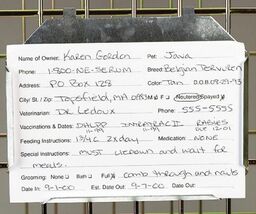 Name of Owner: Karen Gordon Pet: Java
Phone: 1-800-NE-SERUM Breed: Belgian Tervuren
Address: PO Box 128 Color: Tan D.O.B. 08-28-93
City / St / Zip: Topsfield, MA 01983 M F Neutered Spayed
Veterinarian: Dr. Ledoux Phone: 555-5555
Vaccinations & Dates: DHLPP 11-99 INTRATRAC II 11-99 RABIES Due 12-01
Feeding Instructions: 1 3/4 C 2x day Medication: NONE
Special Instructions: must liedown and wait for
meals.
Grooming: None Bath Full comb through and nails
Date In: 9-1-00 Est. Date Out: 9-7-00 Date Out: